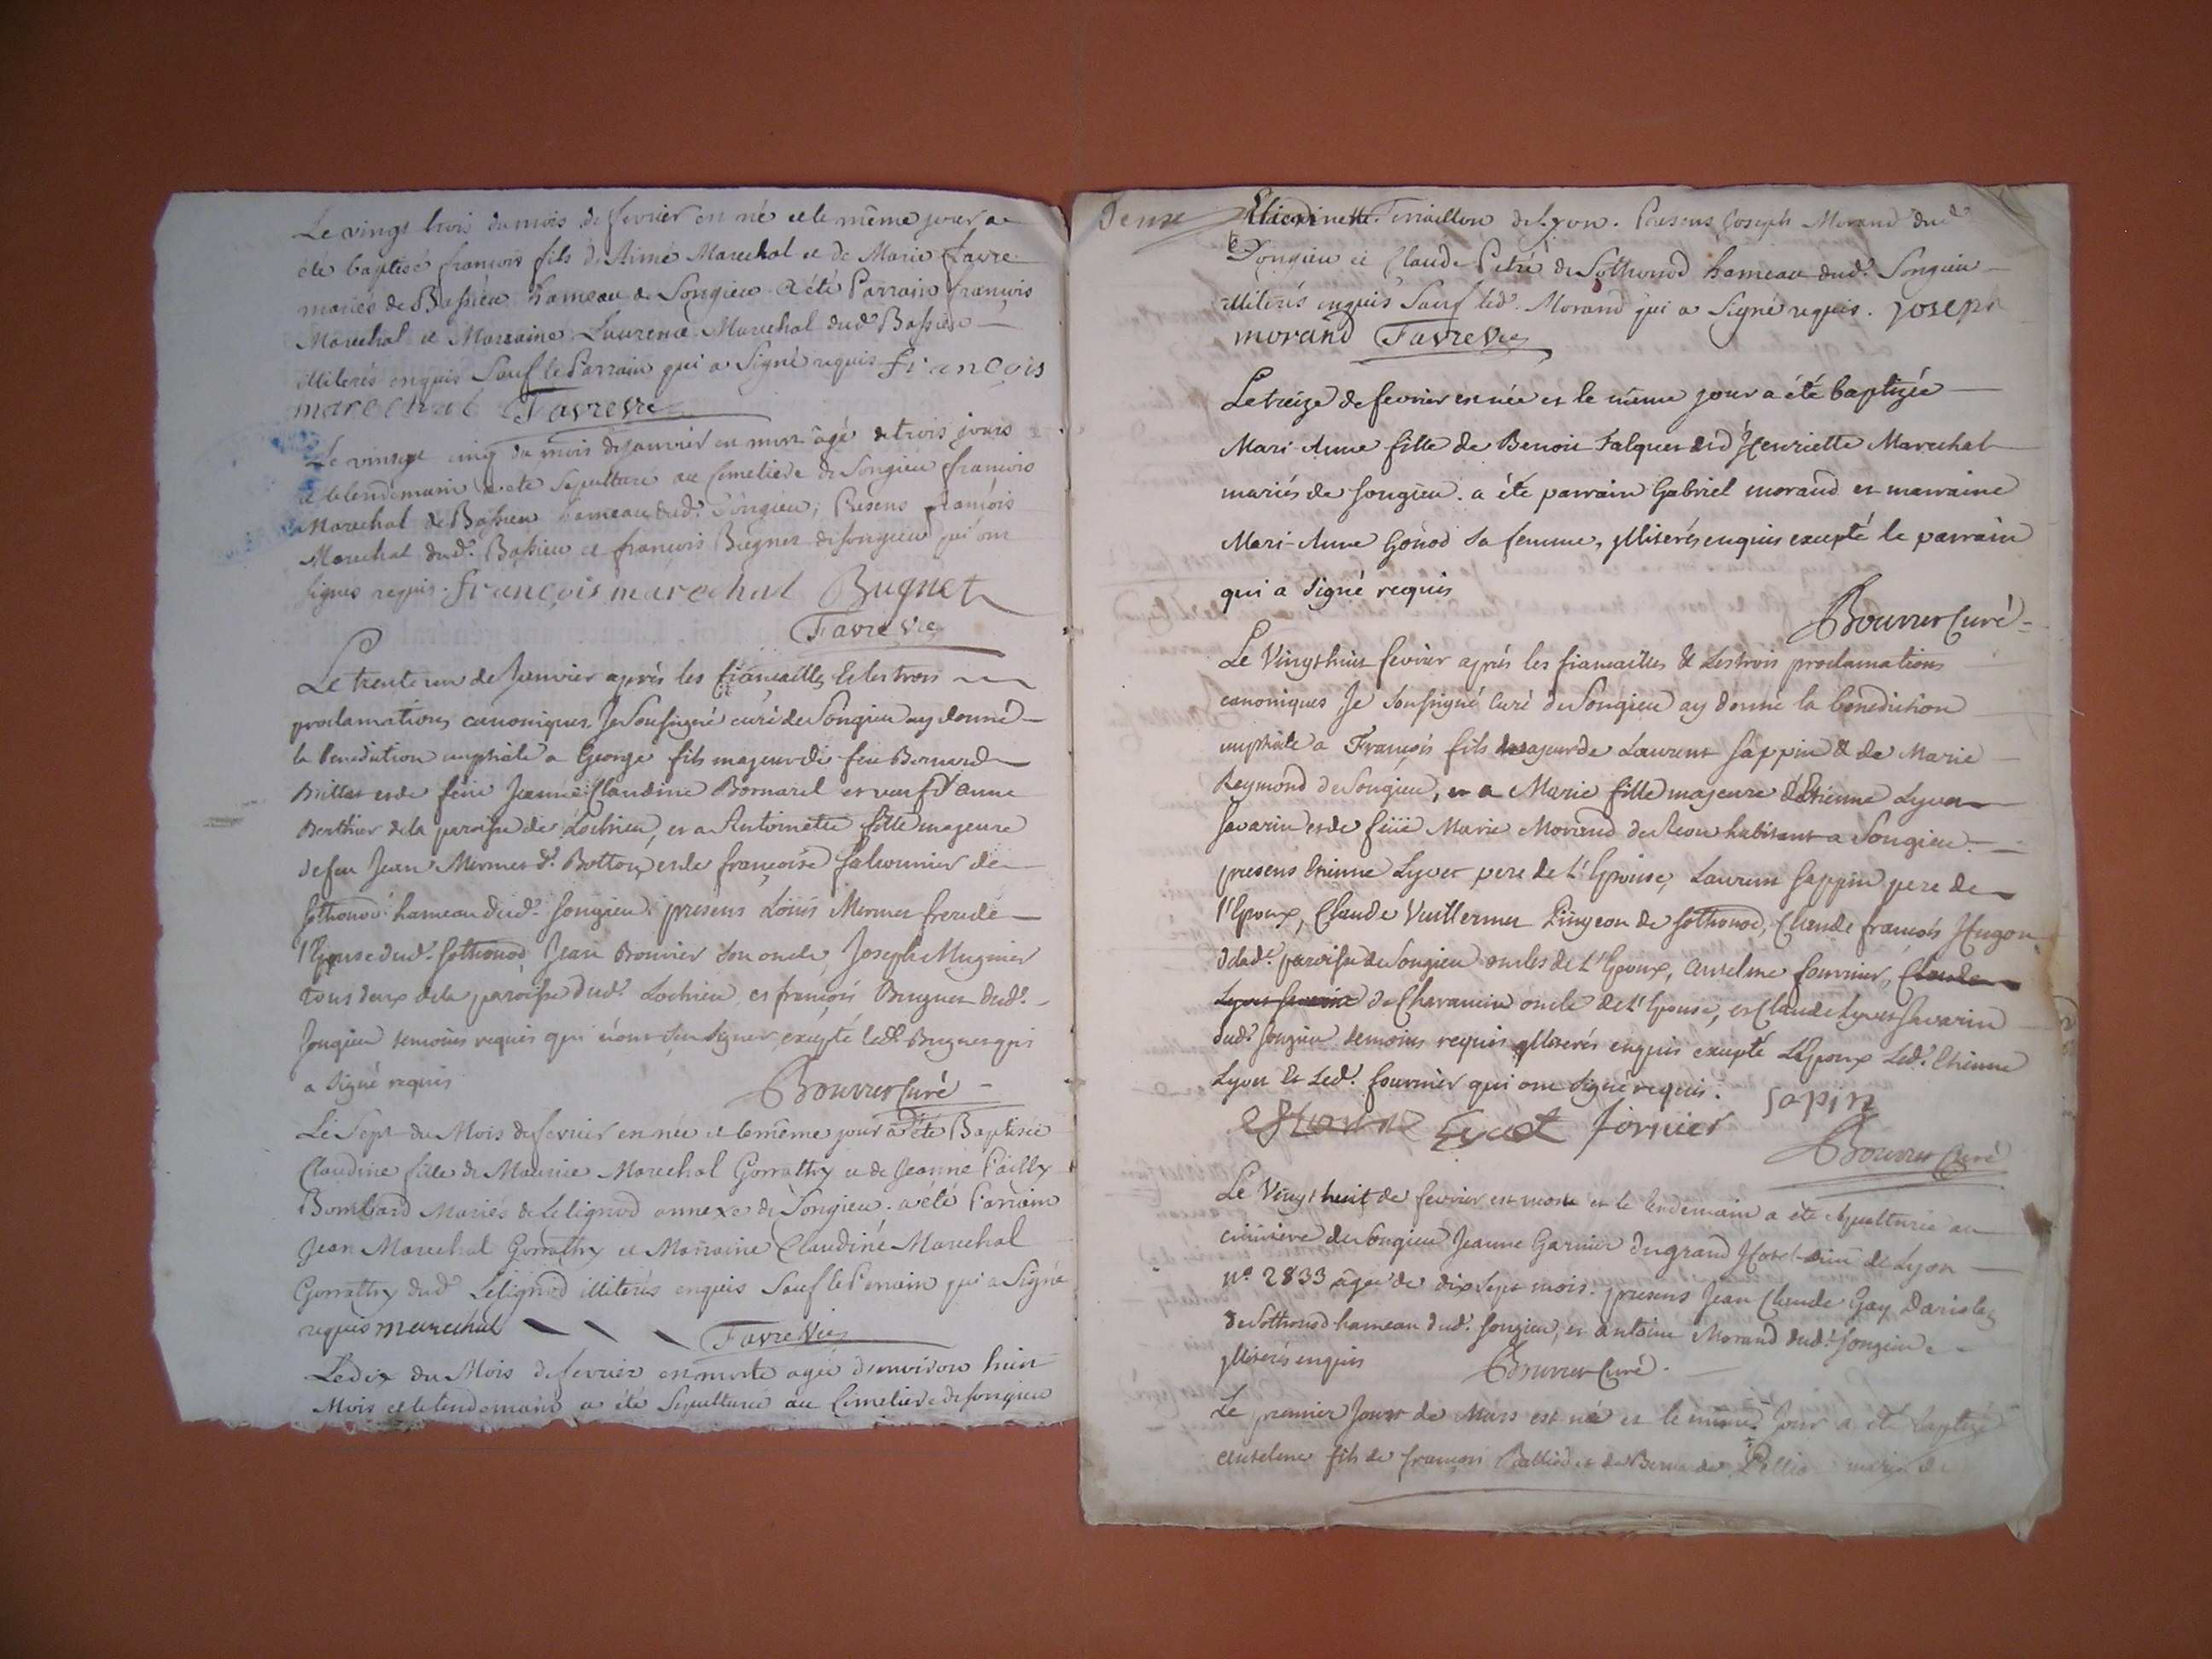 Le vingt trois du mois de fevrier est né et le même jour a
été baptisé francois fils de Aimé Marechal et de Marie Favre
mariés de Bassieu hameau de Songieu a été Parrain francois
Marechal et Marraine Laurence Marechal dud. Bassieu
illiterés enquis Sauf le Parrain qui a Signé requis françois
marechal Favre vic
Le vingt cinq du mois de janvier est mort âgé de trois jours
et le lendemain a été Sepulturé au Cimetiere de Songieu francois
Marechal de Bassieu hameau dud. Songieu, Presens francois
Marechal dud. Bassieu et francois Bugnet de songieu qui ont
signés requis. françois marechal Bugnet
Favre vic
Le trente un de Janvier après les fiançailles Et les trois
proclamations canoniques Je Soussigné curé de Songieu ay donné
la benediction nuptiale a George fils majeur de feu Bernard
Brillat et de feüe Jeanne Claudine Bornarel et veuf d'anne
Berthier de la paroisse de Lochieu, et a Antoinette fille majeure
de feu Jean Mermet d. Botton et de françoise falconnier de
Sothonod hameau dud. Songieu. presens Loüis Mermet frere de
l'Epouse dud. Sothonod, Jean Bonnier son oncle, Joseph Muginier
tous deux de la paroisse dud. Lochieu et françois Bugnet dud.
Songieu temoins requis qui n'ont sçeu Signer, excepté led. Bugnet qui
a Signé requis
Bouvier Curé
Le Sept du Mois de fevrier est née et le même jour a été Baptisée
Claudine fille de Maurice Marechal Gorrathy et de Jeanne Pailly
Bombard Mariés de Lilignod annexe de Songieu. a été Parrain
Jean Marechal Gorrathy et Marraine Claudine Marechal
Gorrathy dud. Lilignod illiterés enquis Sauf le Parrain qui a Signé
requis marechal Favre Vic
Le dix du Mois de fevrier est morte agée d'environ huit
Mois et le lendemain a été Sepulturée au Cimetiere de songieu
Deuxe de Lyon. Presens Joseph Morand dud.
Songieu et Claude Petré de Sothonod hameau dud. Songieu
illiterés enquis Sauf led. Morand qui a Signé requis. joseph
morand Favre Vic
Le treize de fevrier est née et le même jour a été baptizée
Mari-Anne fille de Benoit Falquet et d'Henriette Marechal
mariés de songieu. a été parrain Gabriel morand et marraine
Mari-Anne Gonod sa femme, illiterés enquis excepté le parrain
qui a Signé requis
Bouvier Curé
Le Vingt huit fevrier après les fiançailles & les trois proclamations
canoniques Je Soussigné Curé de Songieu ay donné la benediction
nuptiale a François fils majeur de Laurent Sappin & de Marie
Reymond de Songieu, et a Marie fille majeure d'Etienne Lyvet
Savarin et de feüe Marie Morand habitant a Songieu.
presens Etienne Lyvet pere de L'Epouse, Laurent Sappin pere de
l'Epoux, Claude Vuillermet Pingeon de Sothonod, Claude françois Hugon
de lad. paroisse de Songieu oncles de L'Epoux, Anselme fournier, Claude
Lyvet Savarin de Charancin oncle de L'Epouse, et Claude Lyvet Savarin
dud. Songieu temoins requis illiterés enquis excepté L'Epoux Led. Etienne
Lyvet Et Led. fournier qui ont signé requis.
Lyvet fornier sapin
Bouvier Curé
Le Vingt huit de fevrier est morte et le lendemain a été sepulturée au
cimetiere de Songieu Jeanne Garnier du grand Hotel-Dieu de Lyon
N.º 2833 âgée de dix sept mois. presens Jean Claude Gay
de Sothonod hameau dud. Songieu, et Antoine Morand dud. Songieu
illiterés enquis Bouvier Curé.
Le premier Jour de Mars est né et le même Jour a été baptizé
Anselme fils de françois Balliod et de mariés de